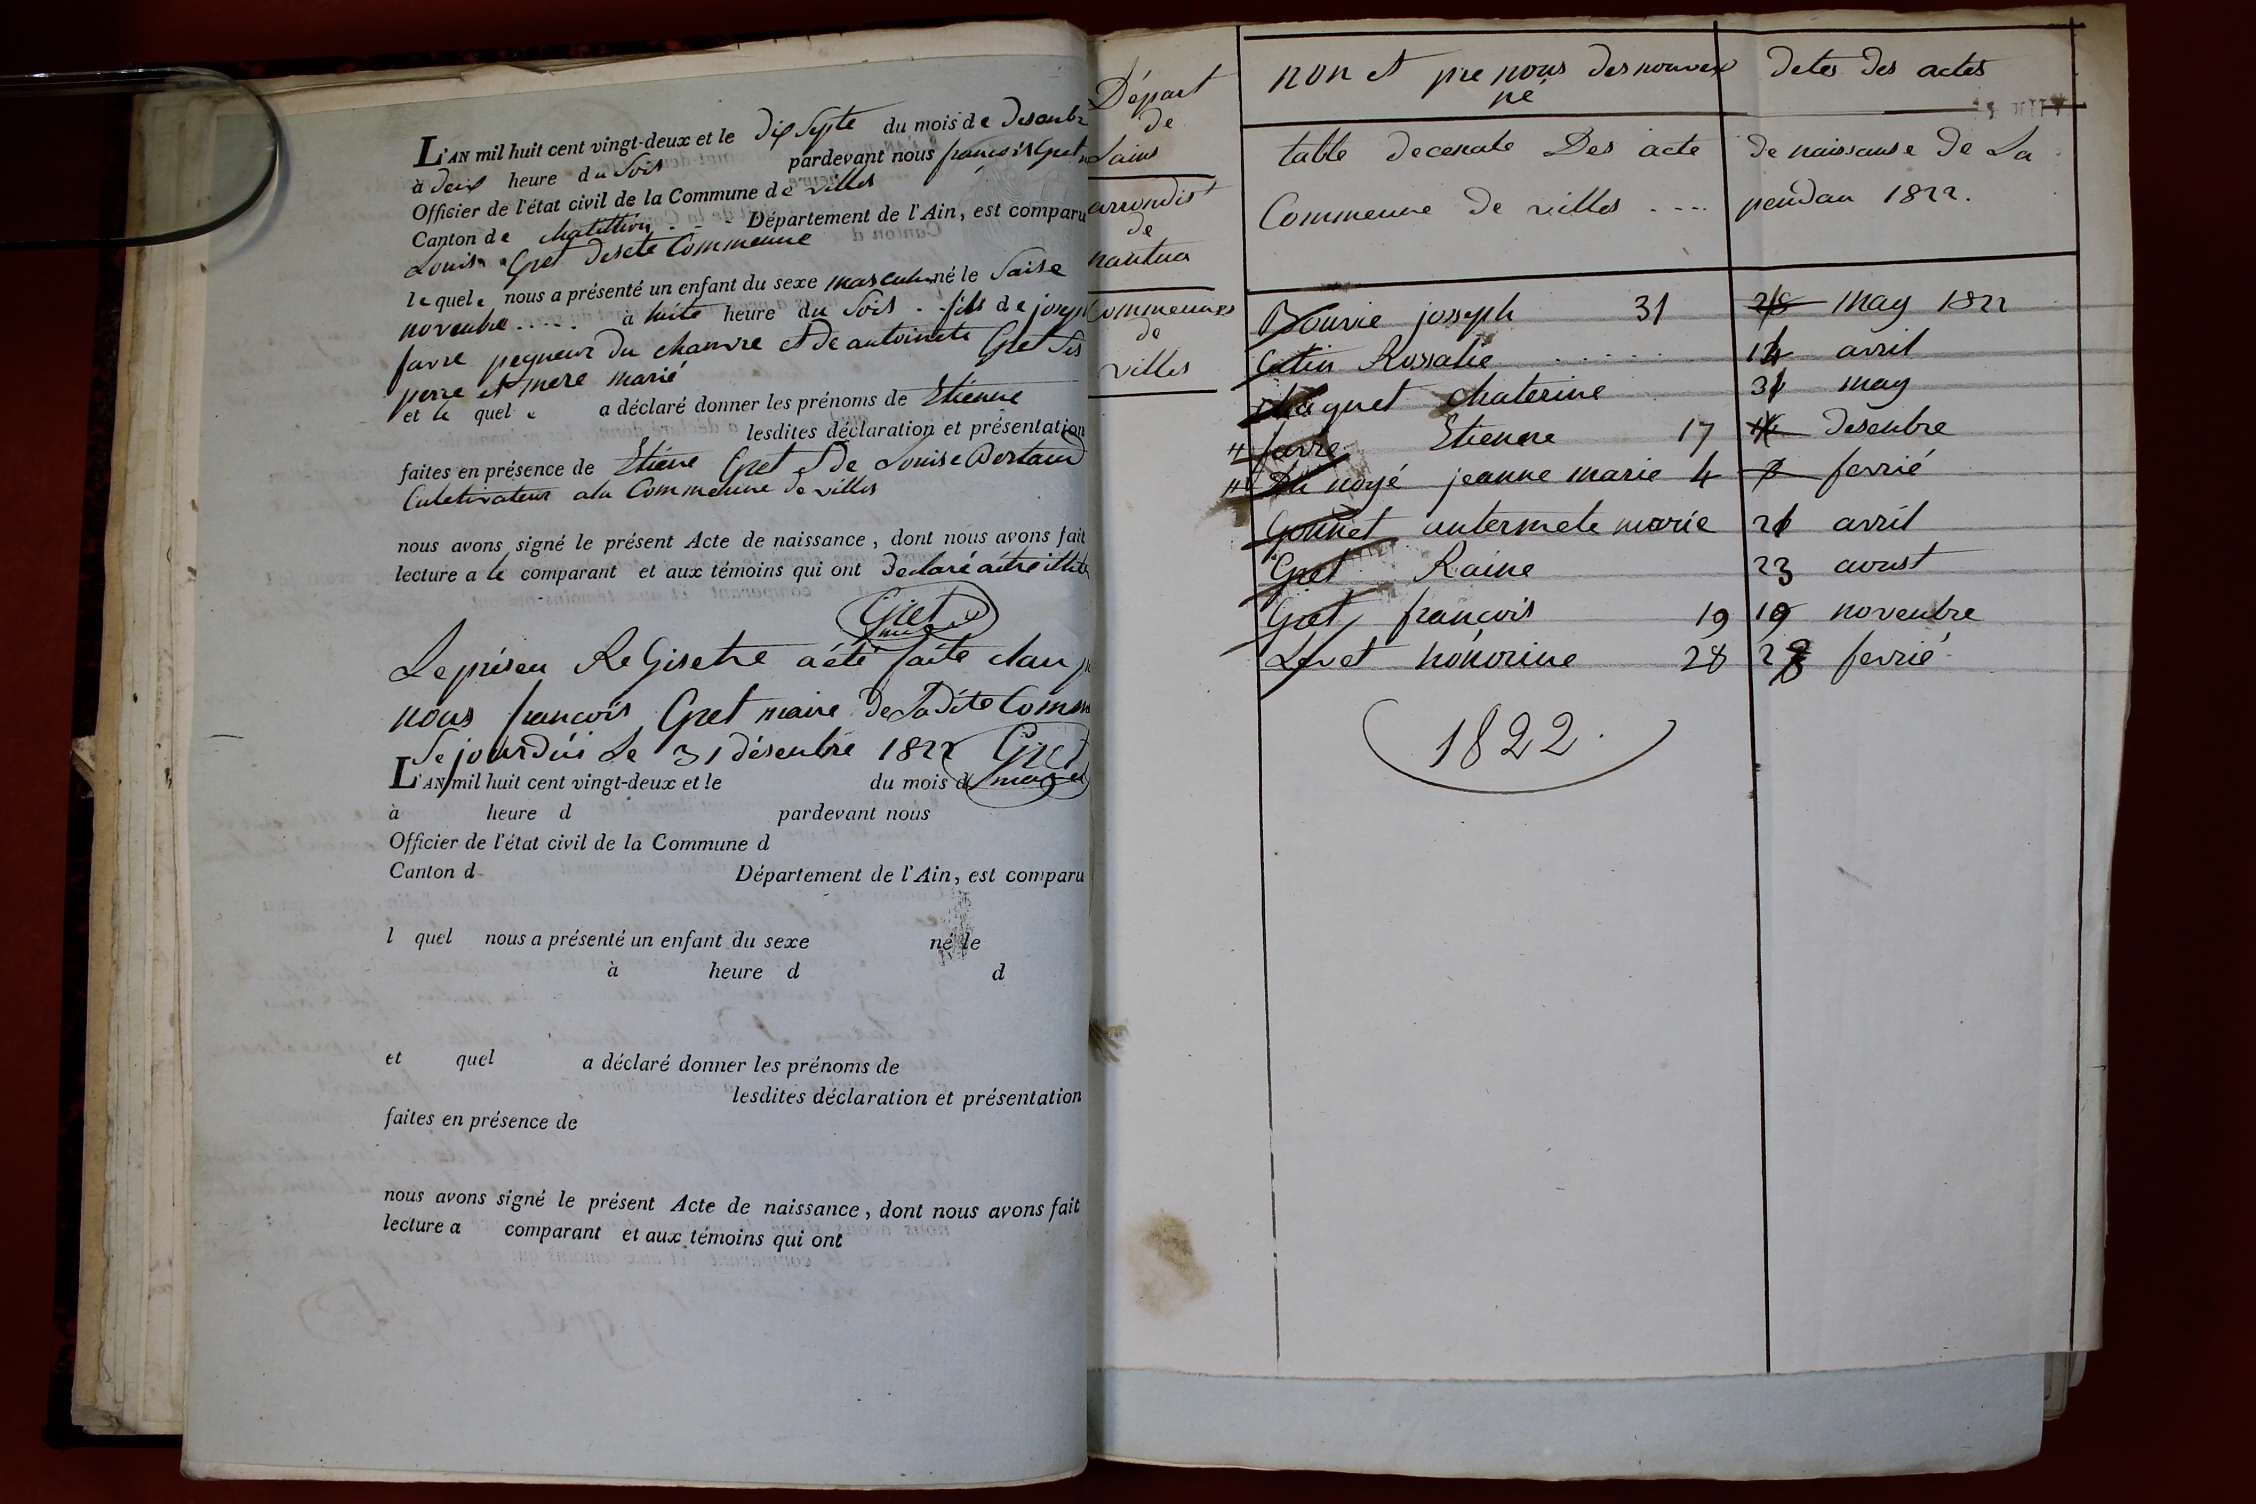 L'AN mil huit cent vingt-deux et le dix septe du mois de desenbr
à deux heure du Soir pardevant nous francois Gret
Officier de l'état civil de la Commune de villes
Canton de chatillion Département de l'Ain, est comparu
Louis Gret desete Commeune
lequele nous a présenté un enfant du sexe masculin né le Saise
novenbre à huite heure du Soir fils de joseph
favre pegneur du chanvre et de antoinete Gret Ses
perre et mere marié
et le quel e a déclaré donner les prénoms de Etienne
lesdites déclaration et présentation
faites en présence de Etiene Gret et de Louise Bertaud
Culetivateur a la Commeune de villes
nous avons signé le présent Acte de naissance, dont nous avons fait
lecture a le comparant et aux témoins qui ont declaré aitre
Gret
maire
Le présen ReGisetre a été faite clau
nous francois Gret maire de Ladite Comm
Se jourdui Le 31 désenbre 1822 Gret
maire
L'AN mil huit cent vingt-deux et le du mois d
à heure d pardevant nous
Officier de l'état civil de la Commune d
Canton d Département de l'Ain, est comparu
l quel nous a présenté un enfant du sexe né le
à heure d d
et quel a déclaré donner les prénoms de
lesdites déclaration et présentation
faites en présence de
nous avons signé le présent Acte de naissance, dont nous avons fait
lecture a comparant et aux témoins qui ont
Départ
de
Lains
arrondist
de
nantua
Commeunes
de
villes
non et pre nous des nouvex né detes des actes
table decenale Des acte de naissanse de La
Commeune de villes .... pendan 1822.
Bouvie josseph 31 28 may 1822
Cottin Rossalie ...... 14 avril
chaquet chaterine 31 may
favre Etienne 17 16 desenbre
Du noyé jeanne marie 4 fevrié
Gonnet antermete marie 21 avril
Gret Raine 23 avoust
Gret francois 19 19 novenbre
Levet honorine 28 28 fevrié
1822.